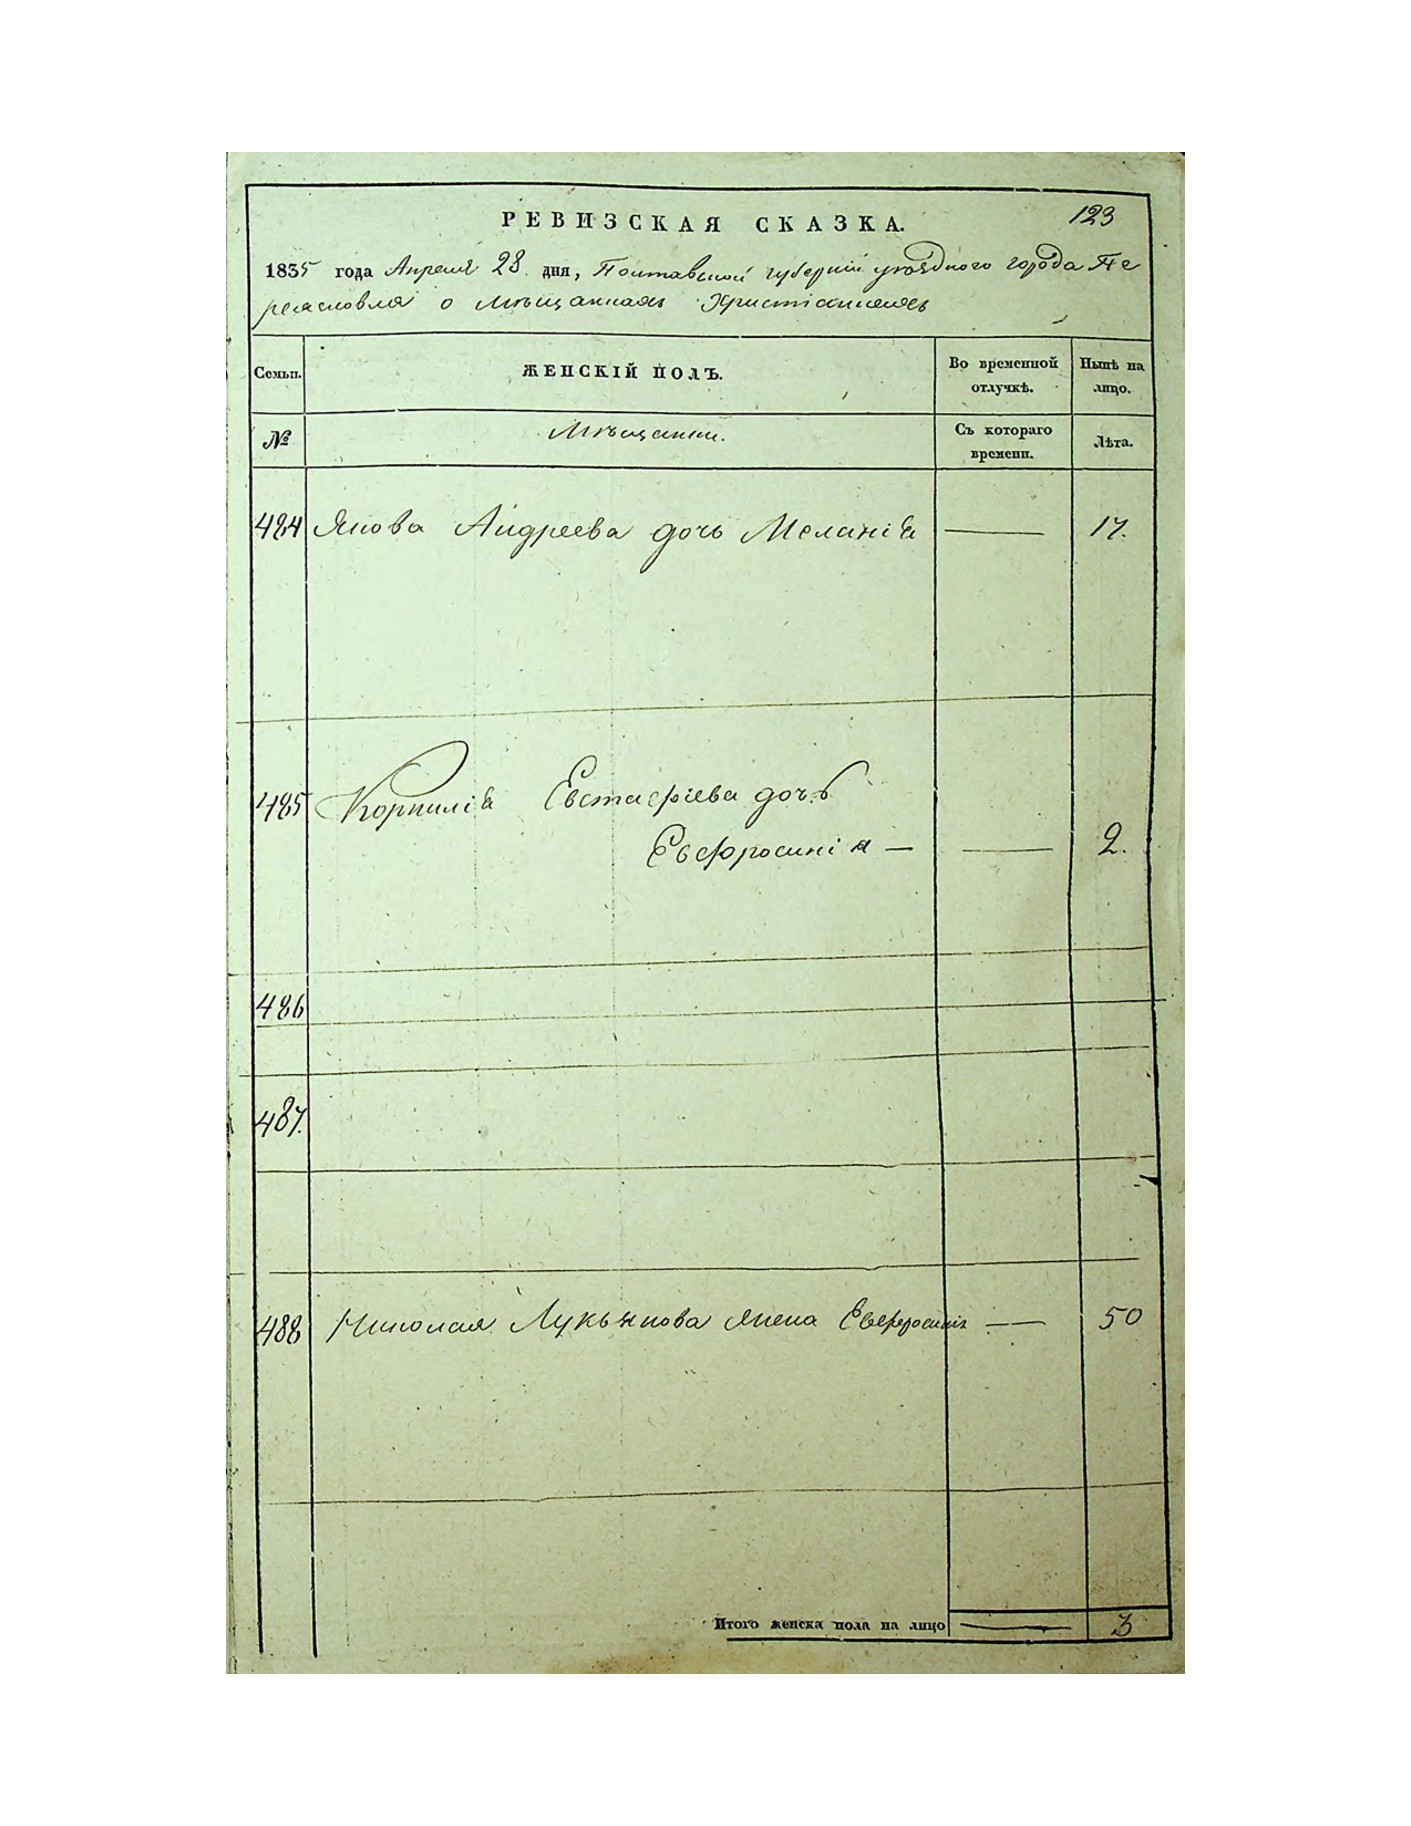 РЕВИЗСКАЯ СКАЗКА.
123
1835 года Апреля 28 дня, Полтавской губерніи уѣзднаго города Пе
реяславля о мѣщанахъ Христіанахъ
Семьи. ЖЕНСКІЙ ПОЛЪ. Во временной отлучкѣ. Нынѣ на лицо.
№ Мѣщанки. Съ котораго времени. Лѣта.
484 Андреева дочь Меланія — 17.
485 Евстафіева дочь
Евфросинія — — 2.
486
487.
488 Николая Лукьянова жена Евфросинія — 50
Итого женска пола на лицо — 3